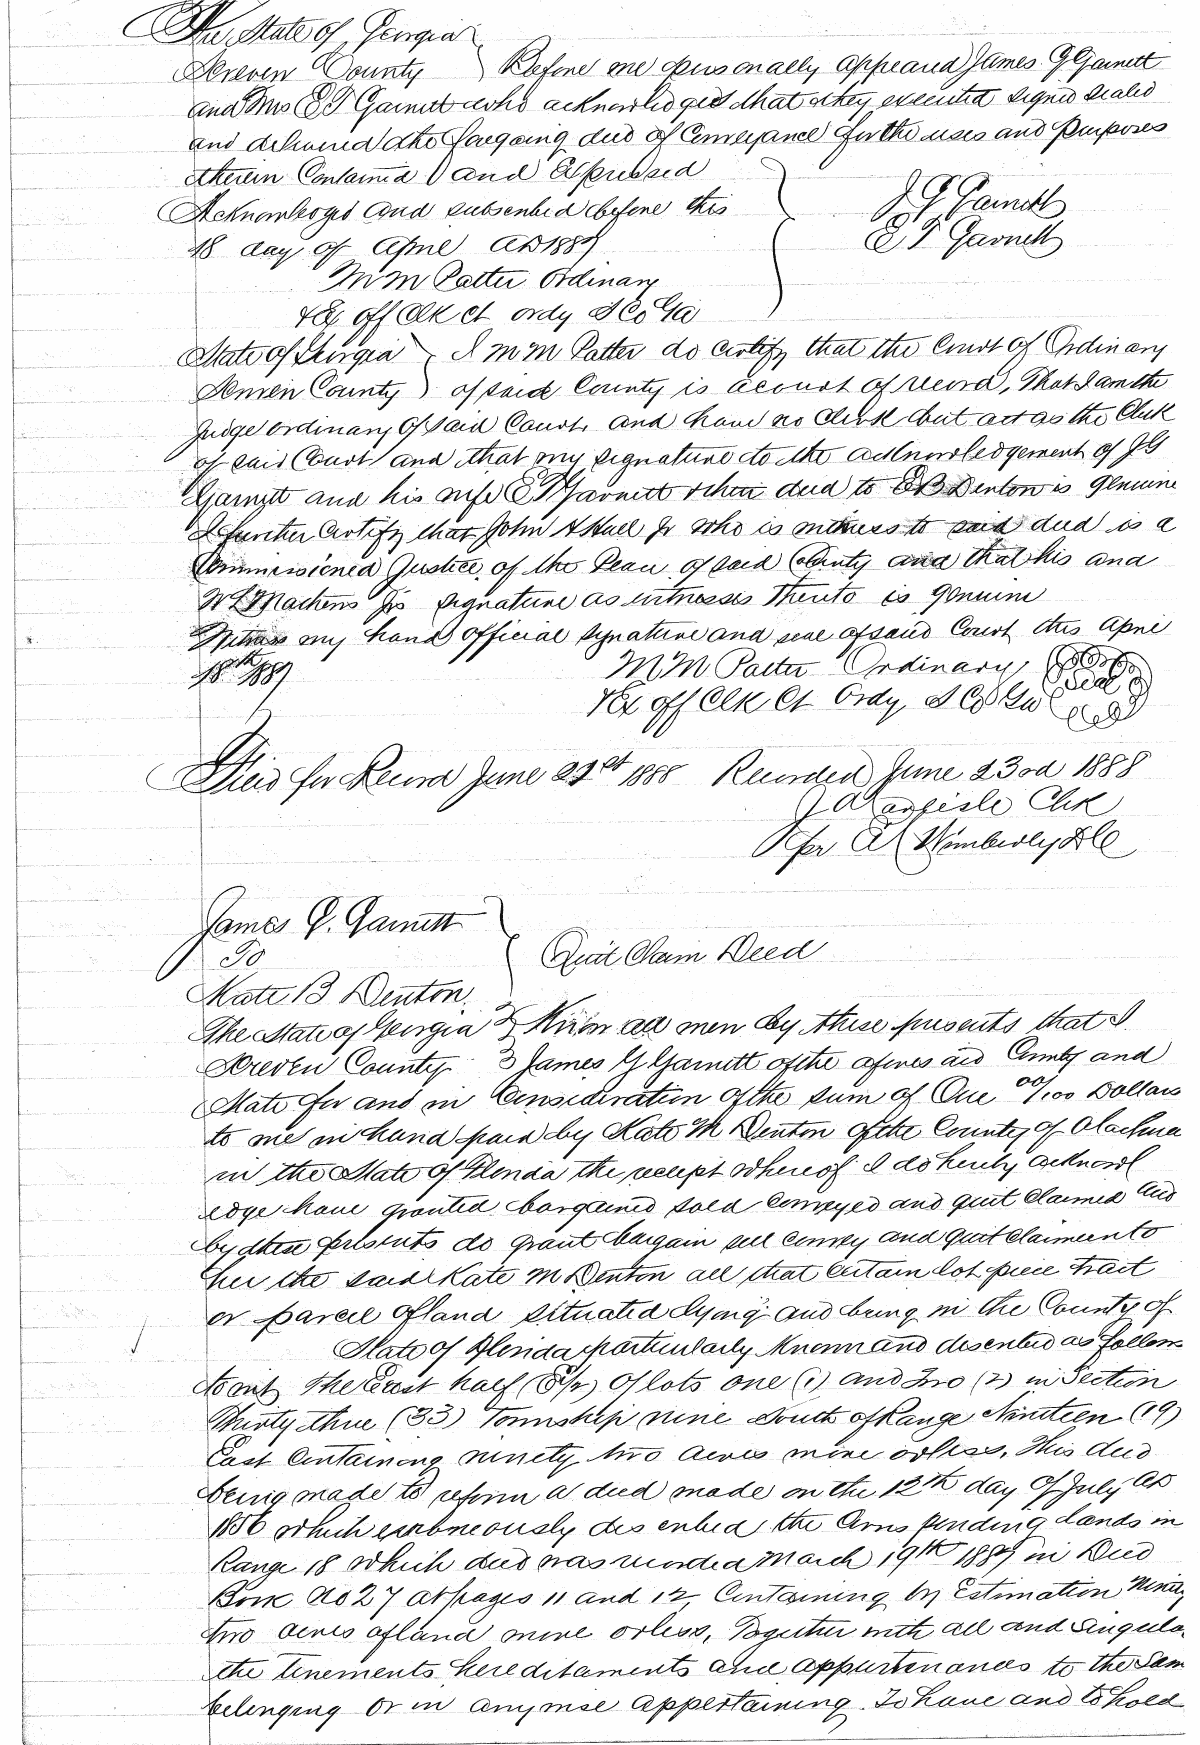 The State of Georgia
Screven County } Before me personally appeared James G Garnett
and Mrs E T Garnett who acknowledged that they executed signed sealed
and delivered the foregoing deed of Conveyance for the uses and purposes
therein Contained and Expressed
Acknowleged and subscribed before this
18 day of April AD 1887
J G Garnett
E T Garnett
M M Potter Ordinary
& Ex off Clk Ct ordy S Co Ga
State of Georgia } I M M Potter do certify that the Court of Ordinary
Screven County } of said County is a court of record, That I am the
Judge ordinary of said Court, and have no Clerk but act as the Clerk
of said Court and that my signature to the acknowledgement of J G
Garnett and his wife E T Garnett to their deed to E B Denton is Genuine
I further Certify that John A Hull Jr who is witness to said deed is a
Commissioned Justice of the Peace of said County and that his and
W L Mathews Jrs signature as witnesses thereto is Genuine
Witness my hand official signature and seal of said Court this April
18th 1887
M M Potter Ordinary
& Ex off Clk Ct Ordy S Co Ga
Seal
Filed for Record June 21st 1888 Recorded June 23rd 1888
J A Carlisle Clk
Per A C Wimberly D C
James G. Garnett
To
Quit Claim Deed
Kate B Denton.
The State of Georgia } Know all men by these presents that I
Screven County } James G Garnett of the aforesaid County and
State for and in Consideration of the sum of One 00/100 Dollars
to me in hand paid by Kate M Denton of the County of Alachua
in the State of Florida the receipt whereof I do hereby acknowl
edge have granted bargained sold conveyed and quit claimed and
by these presents do grant bargain sell convey and quit claim unto
her the said Kate M Denton all that certain lot piece tract
or parcel of land situated lying and being in the County of
State of Florida particularly known and described as follows
to wit The East half (E½) of lots one (1) and Two (2) in Section
Thirty three (33) Township nine South of Range Nineteen (19)
East Containing ninety two acres more or less, This deed
being made to reform a deed made on the 12th day of July AD
1856 which erroneously described the Corresponding Lands in
Range 18 which deed was recorded March 19th 1887 in Deed
Book No 27 at pages 11 and 12 Containing by Estimation Ninety
two acres of land more or less, Together with all and singula
the tenements hereditaments and appurtenances to the Sam
belonging or in anywise appertaining. To have and to hold